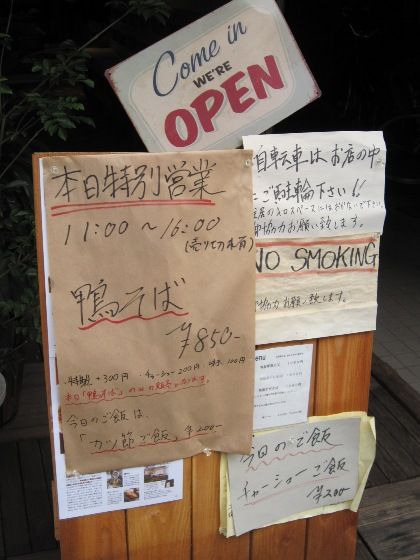 Come in
WE'RE
OPEN
本日特別営業
11:00〜16:00
(売り切れ次第)
鴨そば
¥850-
・特製 +300円 ・チャーシュー 200円 ・味玉 100円
本日「鴨そば」のみの販売となります。
今日のご飯は、
「カツ節ご飯」¥200-
自転車はお店の中
にご駐輪下さい!!
ご協力お願い致します。
NO SMOKING
ご協力お願い致します。
menu
今日のご飯
チャーシューご飯
¥200